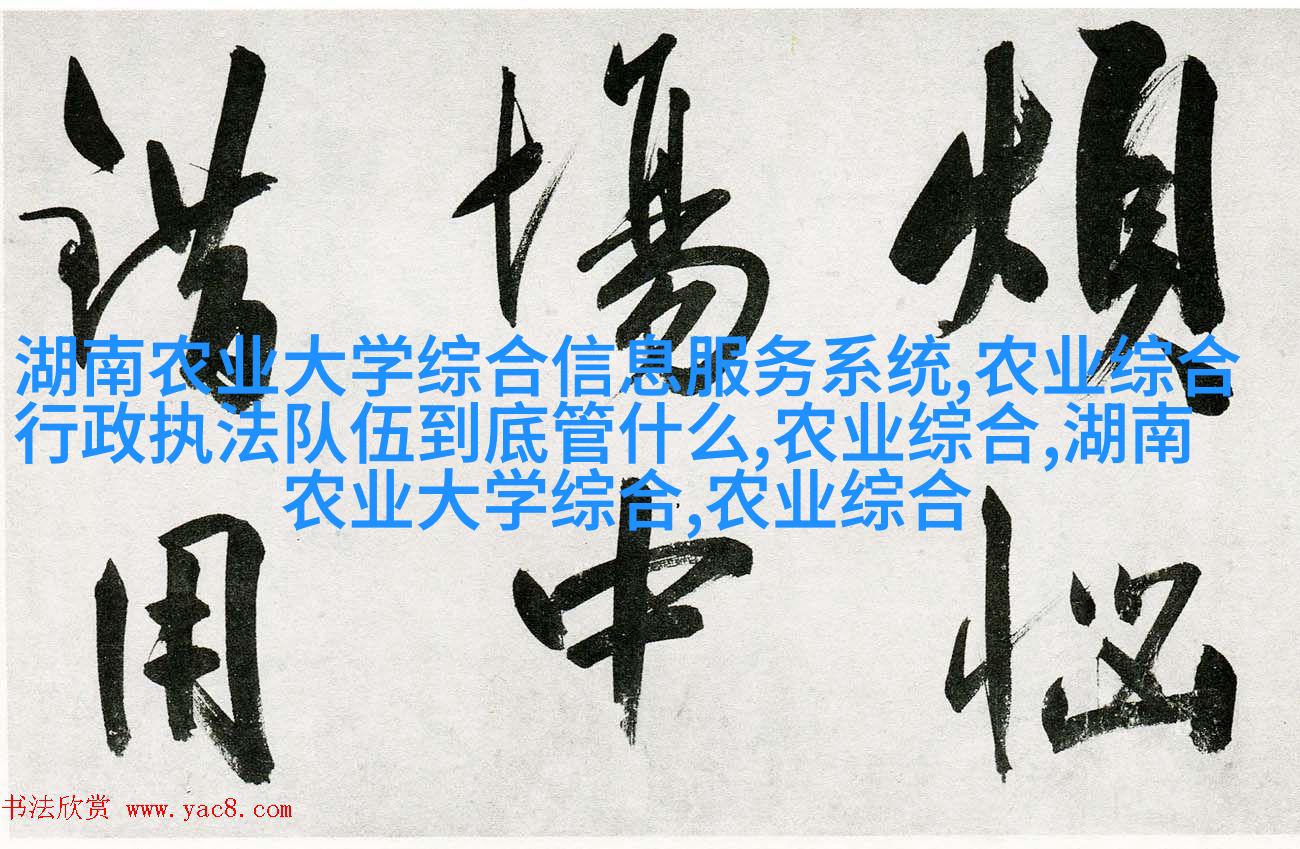 煩惱
場中
錯用
湖南农业大学综合信息服务系统,农业综合
行政执法队伍到底管什么,农业综合,湖南
农业大学综合,农业综合
书法欣赏 www.yac8.com